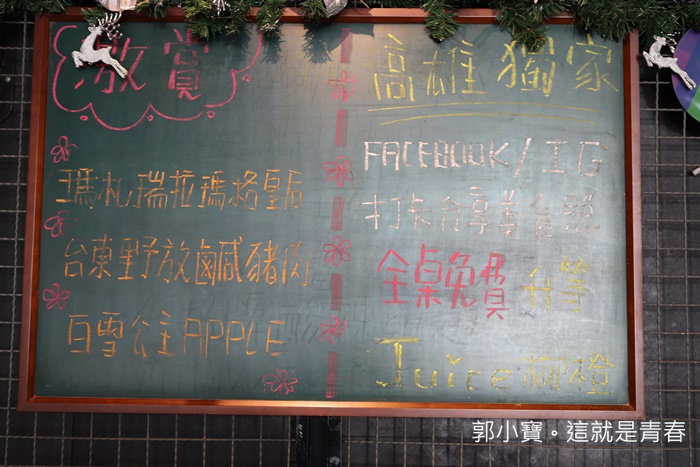 放賞
瑪札瑞拉瑪格皇后
台東野放鹹豬肉
白雪公主APPLE
高雄獨家
FACEBOOK/IG
打卡分享美食照
全桌免費升等
Juice 柳橙
郭小寶。這就是青春